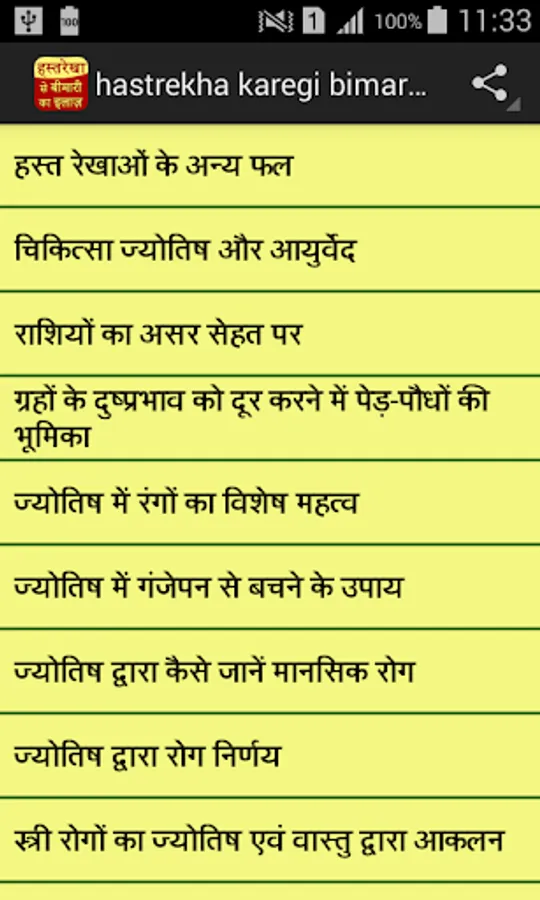 100
1
100%
11:33
हस्तरेखा
से बीमारी
का इलाज़
hastrekha karegi bimar...
हस्त रेखाओं के अन्य फल
चिकित्सा ज्योतिष और आयुर्वेद
राशियों का असर सेहत पर
ग्रहों के दुष्प्रभाव को दूर करने में पेड़-पौधों की
भूमिका
ज्योतिष में रंगों का विशेष महत्व
ज्योतिष में गंजेपन से बचने के उपाय
ज्योतिष द्वारा कैसे जानें मानसिक रोग
ज्योतिष द्वारा रोग निर्णय
स्त्री रोगों का ज्योतिष एवं वास्तु द्वारा आकलन